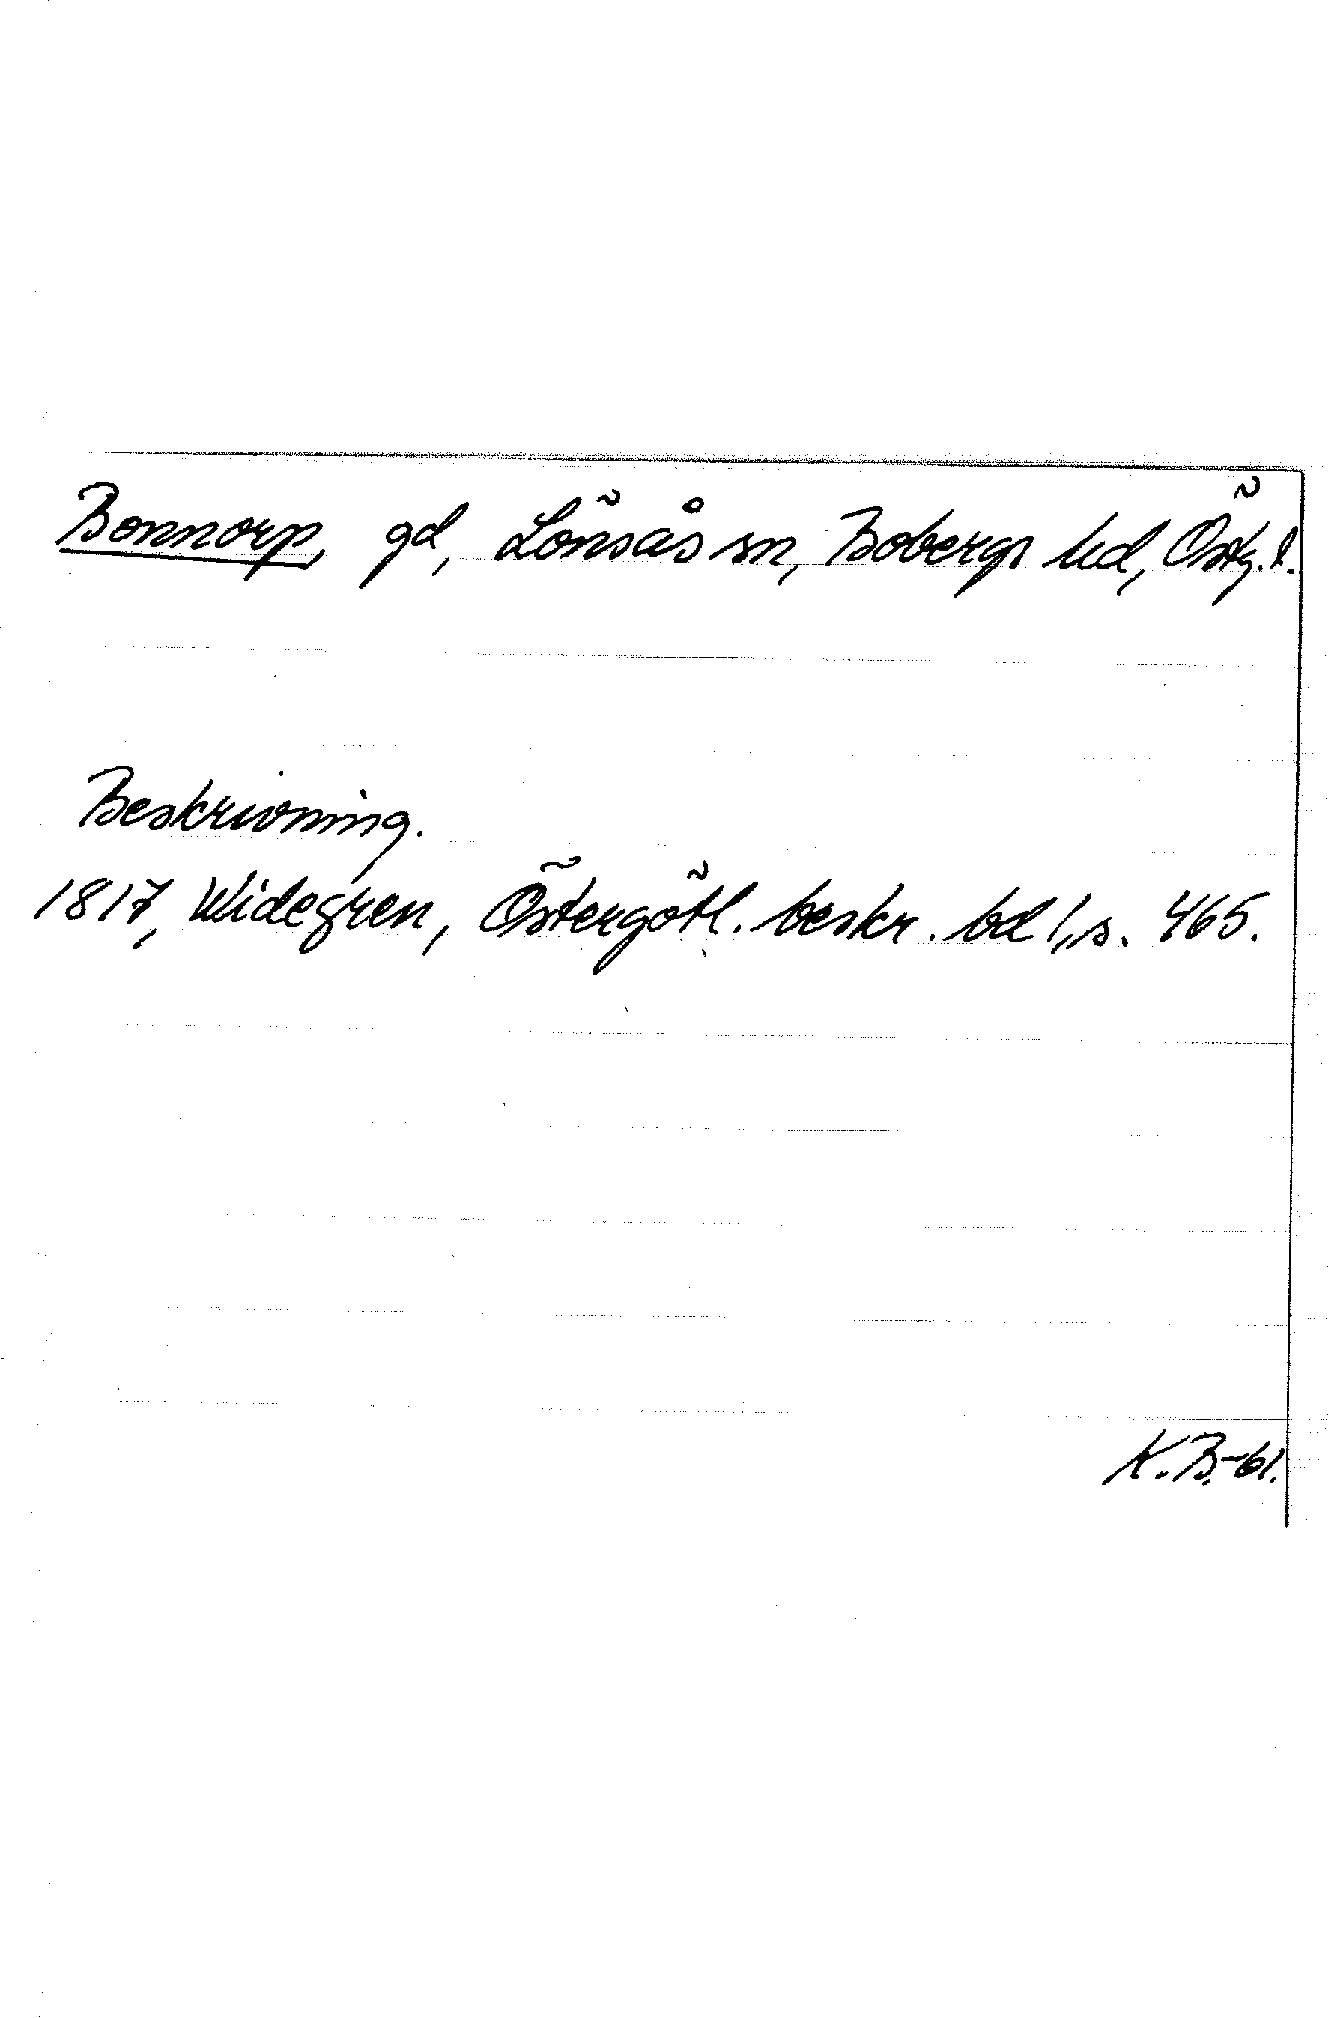 Bonnorp, gd, Lönsås sn, Bobergs hd, Östg. l.
Beskrivning.
1817, Widegren, Östergötl. beskr. bd 1, s. 465.
K.B.-61.